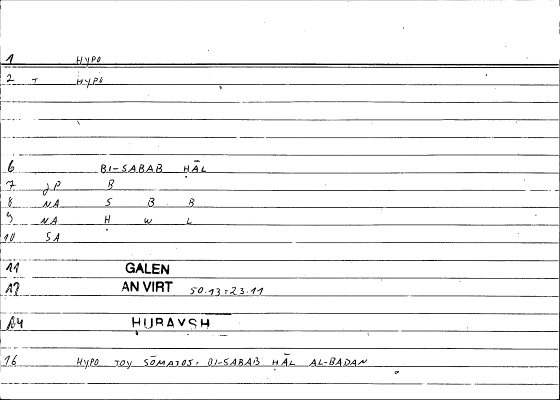 1 HYPO
2 T HYPO
6 BI-SABAB ḤĀL
7 JP B
8 NA S B B
9 NA Ḥ W L
10 SA
11 GALEN
12 AN VIRT 50.13=23.11
14 HUBAYSH
16 HYPO TOY SŌMATOS= BI-SABAB ḤĀL AL-BADAN